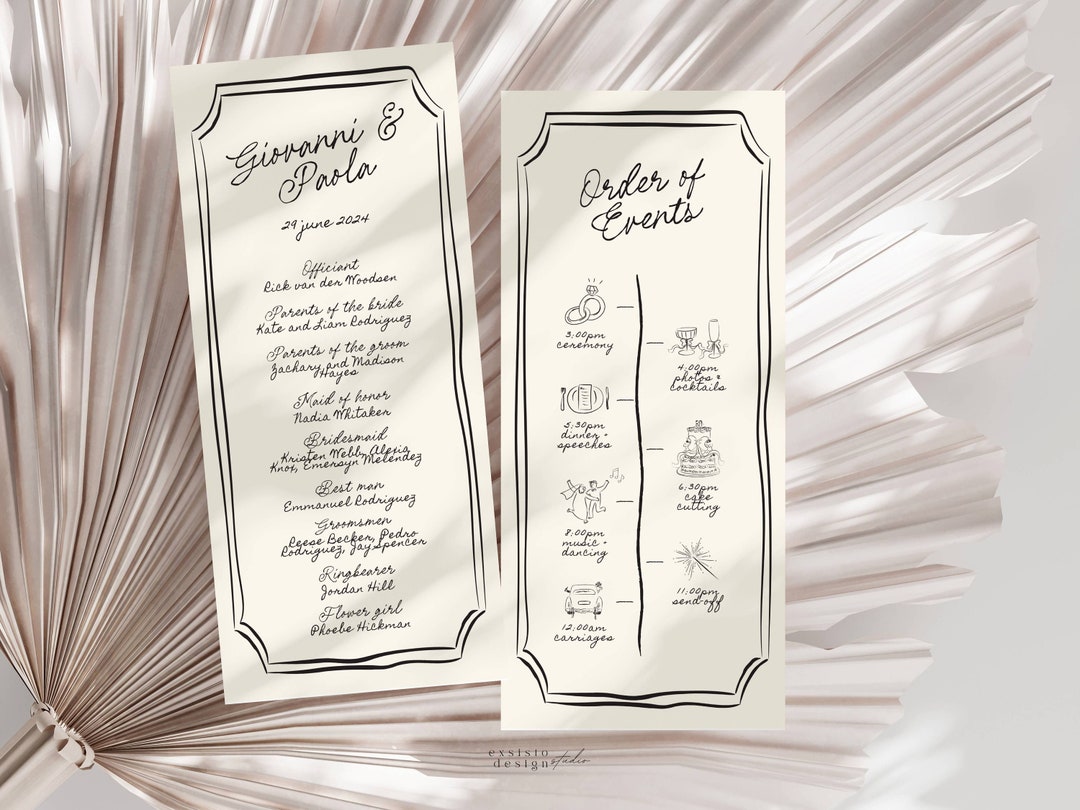 Giovanni &
Paola
29 june 2024
Officiant
Rick van der Woodsen
Parents of the bride
Kate and Liam Rodriguez
Parents of the groom
Zachary and Madison
Hayes
Maid of honor
Nadia Whitaker
Bridesmaid
Kristen Webb, Alexis
Knox, Emersyn Melendez
Best man
Emmanuel Rodriguez
Groomsmen
Reese Becker, Pedro
Rodriguez, Jay Spencer
Ringbearer
Jordan Hill
Flower girl
Phoebe Hickman
Order of
Events
3:00pm
ceremony
4:00pm
photos +
cocktails
5:30pm
dinner +
speeches
6:30pm
cake
cutting
8:00pm
music +
dancing
11:00pm
send-off
12:00am
carriages
exsisto
design studio